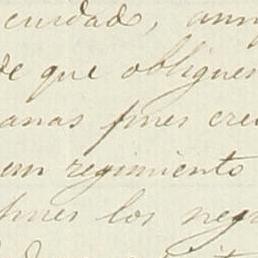 cuidad,
de que obliguen
anas pues cre
un regimiento
pues los neg